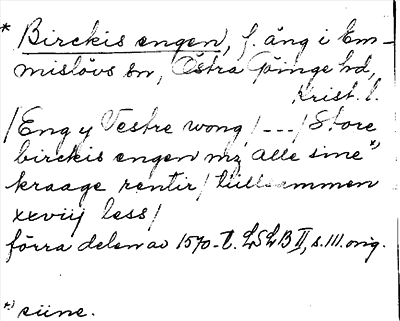 * Birckis engen, f. äng i Em-
mislövs sn, Östra Göinge hd,
Krist. l.
/Eng y Vestre wong/---/Store
birckis engen mz alle sine *)
kraage rentir/ tillsammen
xxviij less/
förra delen av 1570-t. LSLB II, s. 111. orig.
*) siine.